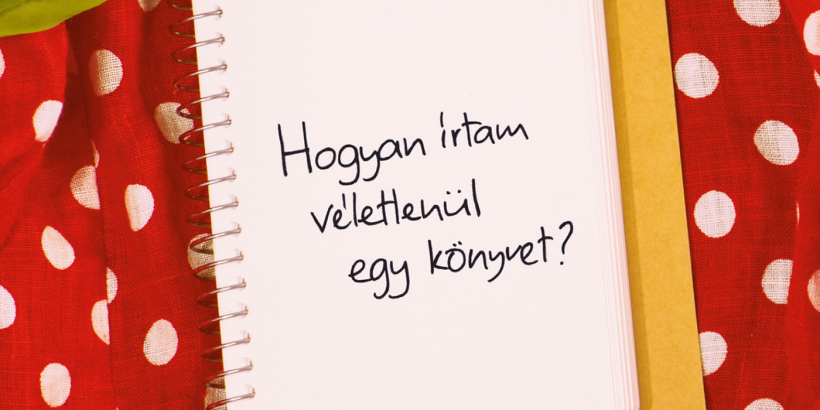 Hogyan írtam
véletlenül
egy könyvet?